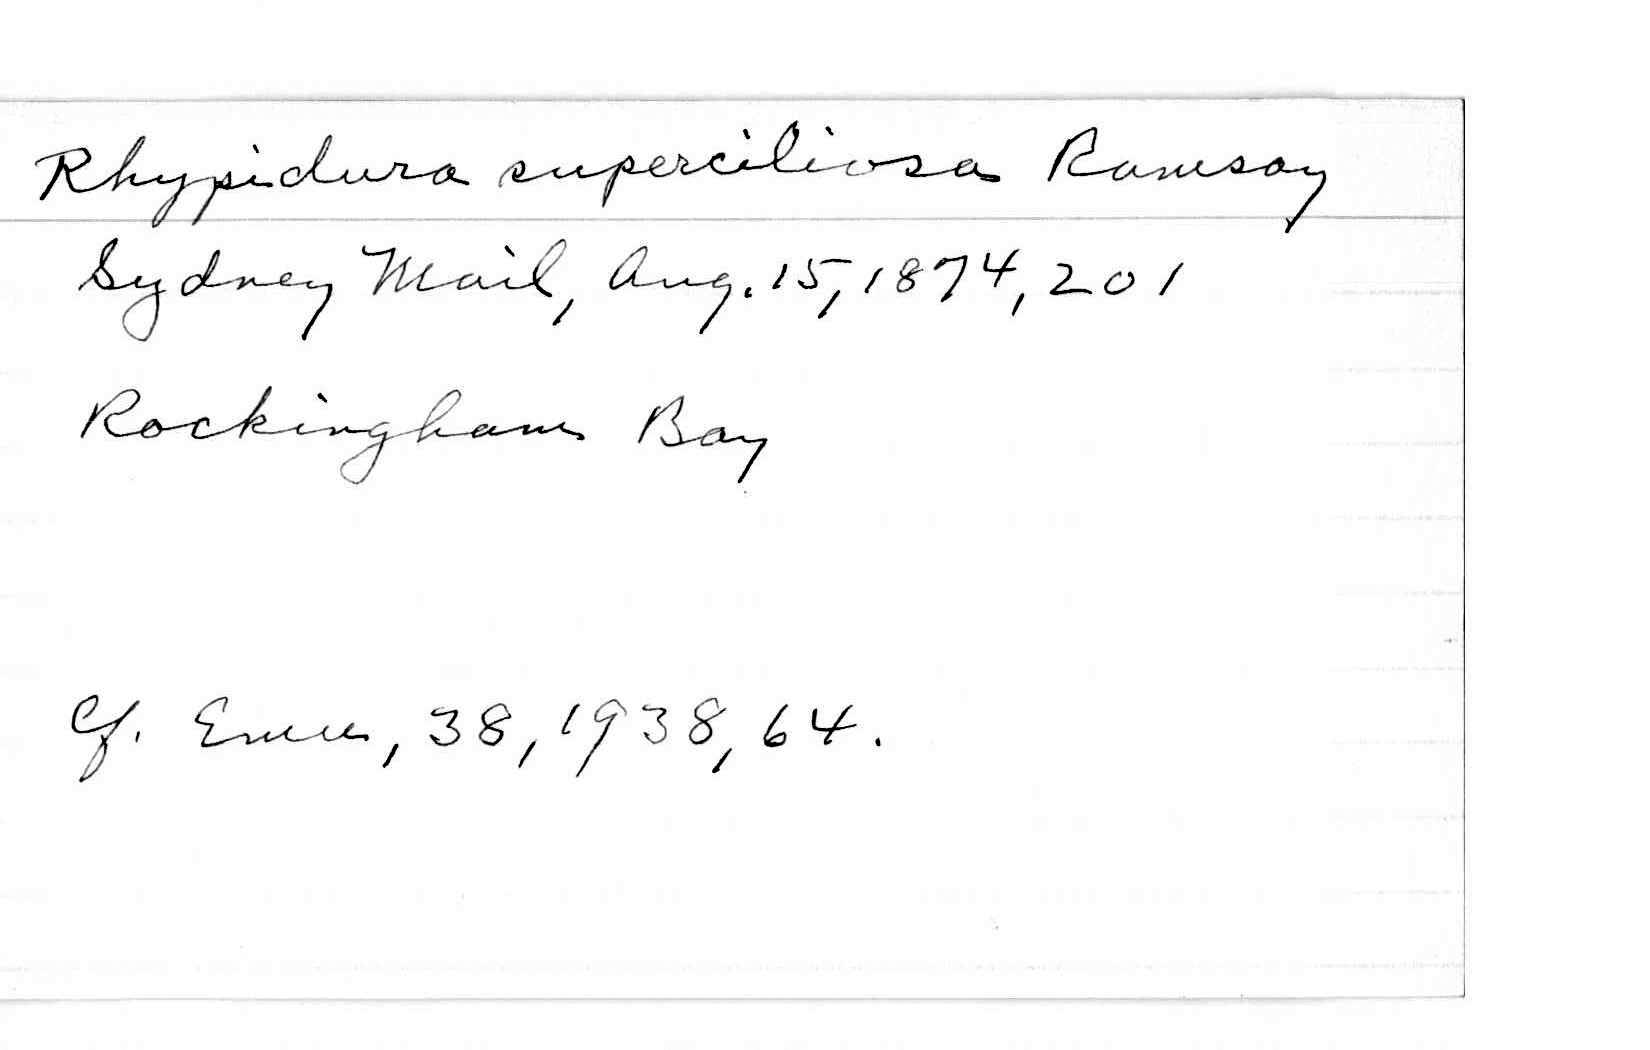 Rhypidura superciliosa Ramsay
Sydney Mail, Aug. 15, 1874, 201
Rockingham Bay
Cf. Emu, 38, 1938, 64.